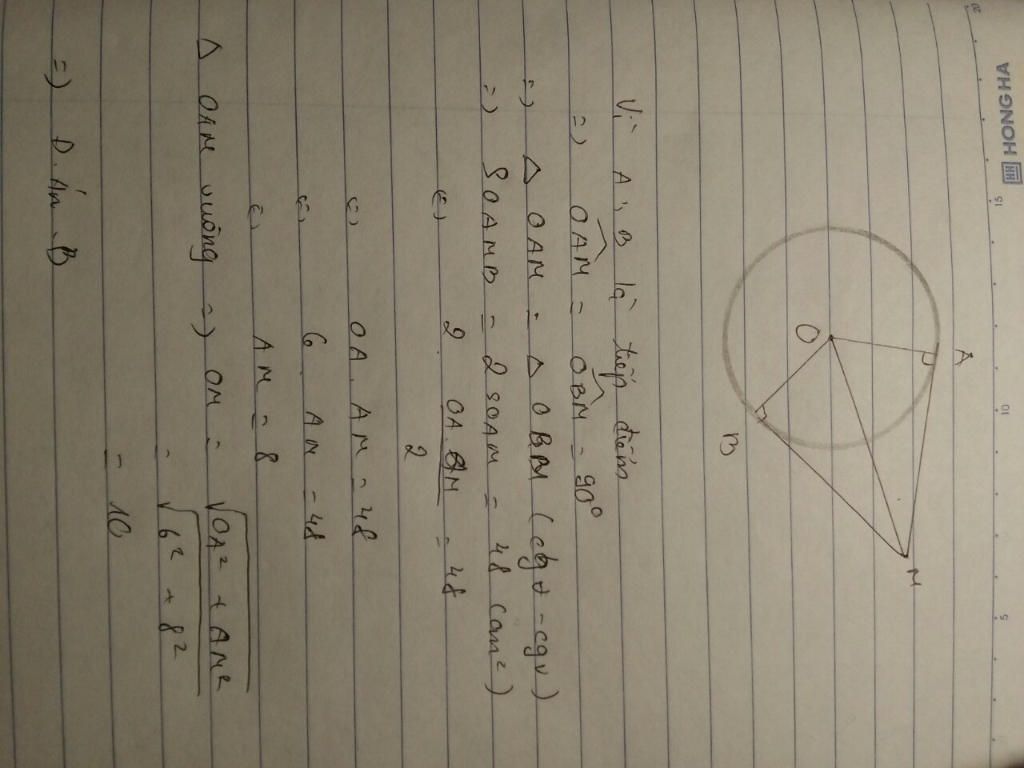 HONG HA
15
10
5
A
O
B
M
Vì A, B là tiếp điểm
=) OAM = OBM = 90°
=) Δ OAM = Δ OBM (cgv - cgv)
=) SOAMB = 2 SOAM = 48 (cm²)
(=) 2 . OA.AM / 2 = 48
(=) OA . AM = 48
(=) 6 . AM = 48
(=) AM = 8
Δ OAM vuông =) OM = √OA² + AM²
= √6² + 8²
= 10
=) Đ. Án . B